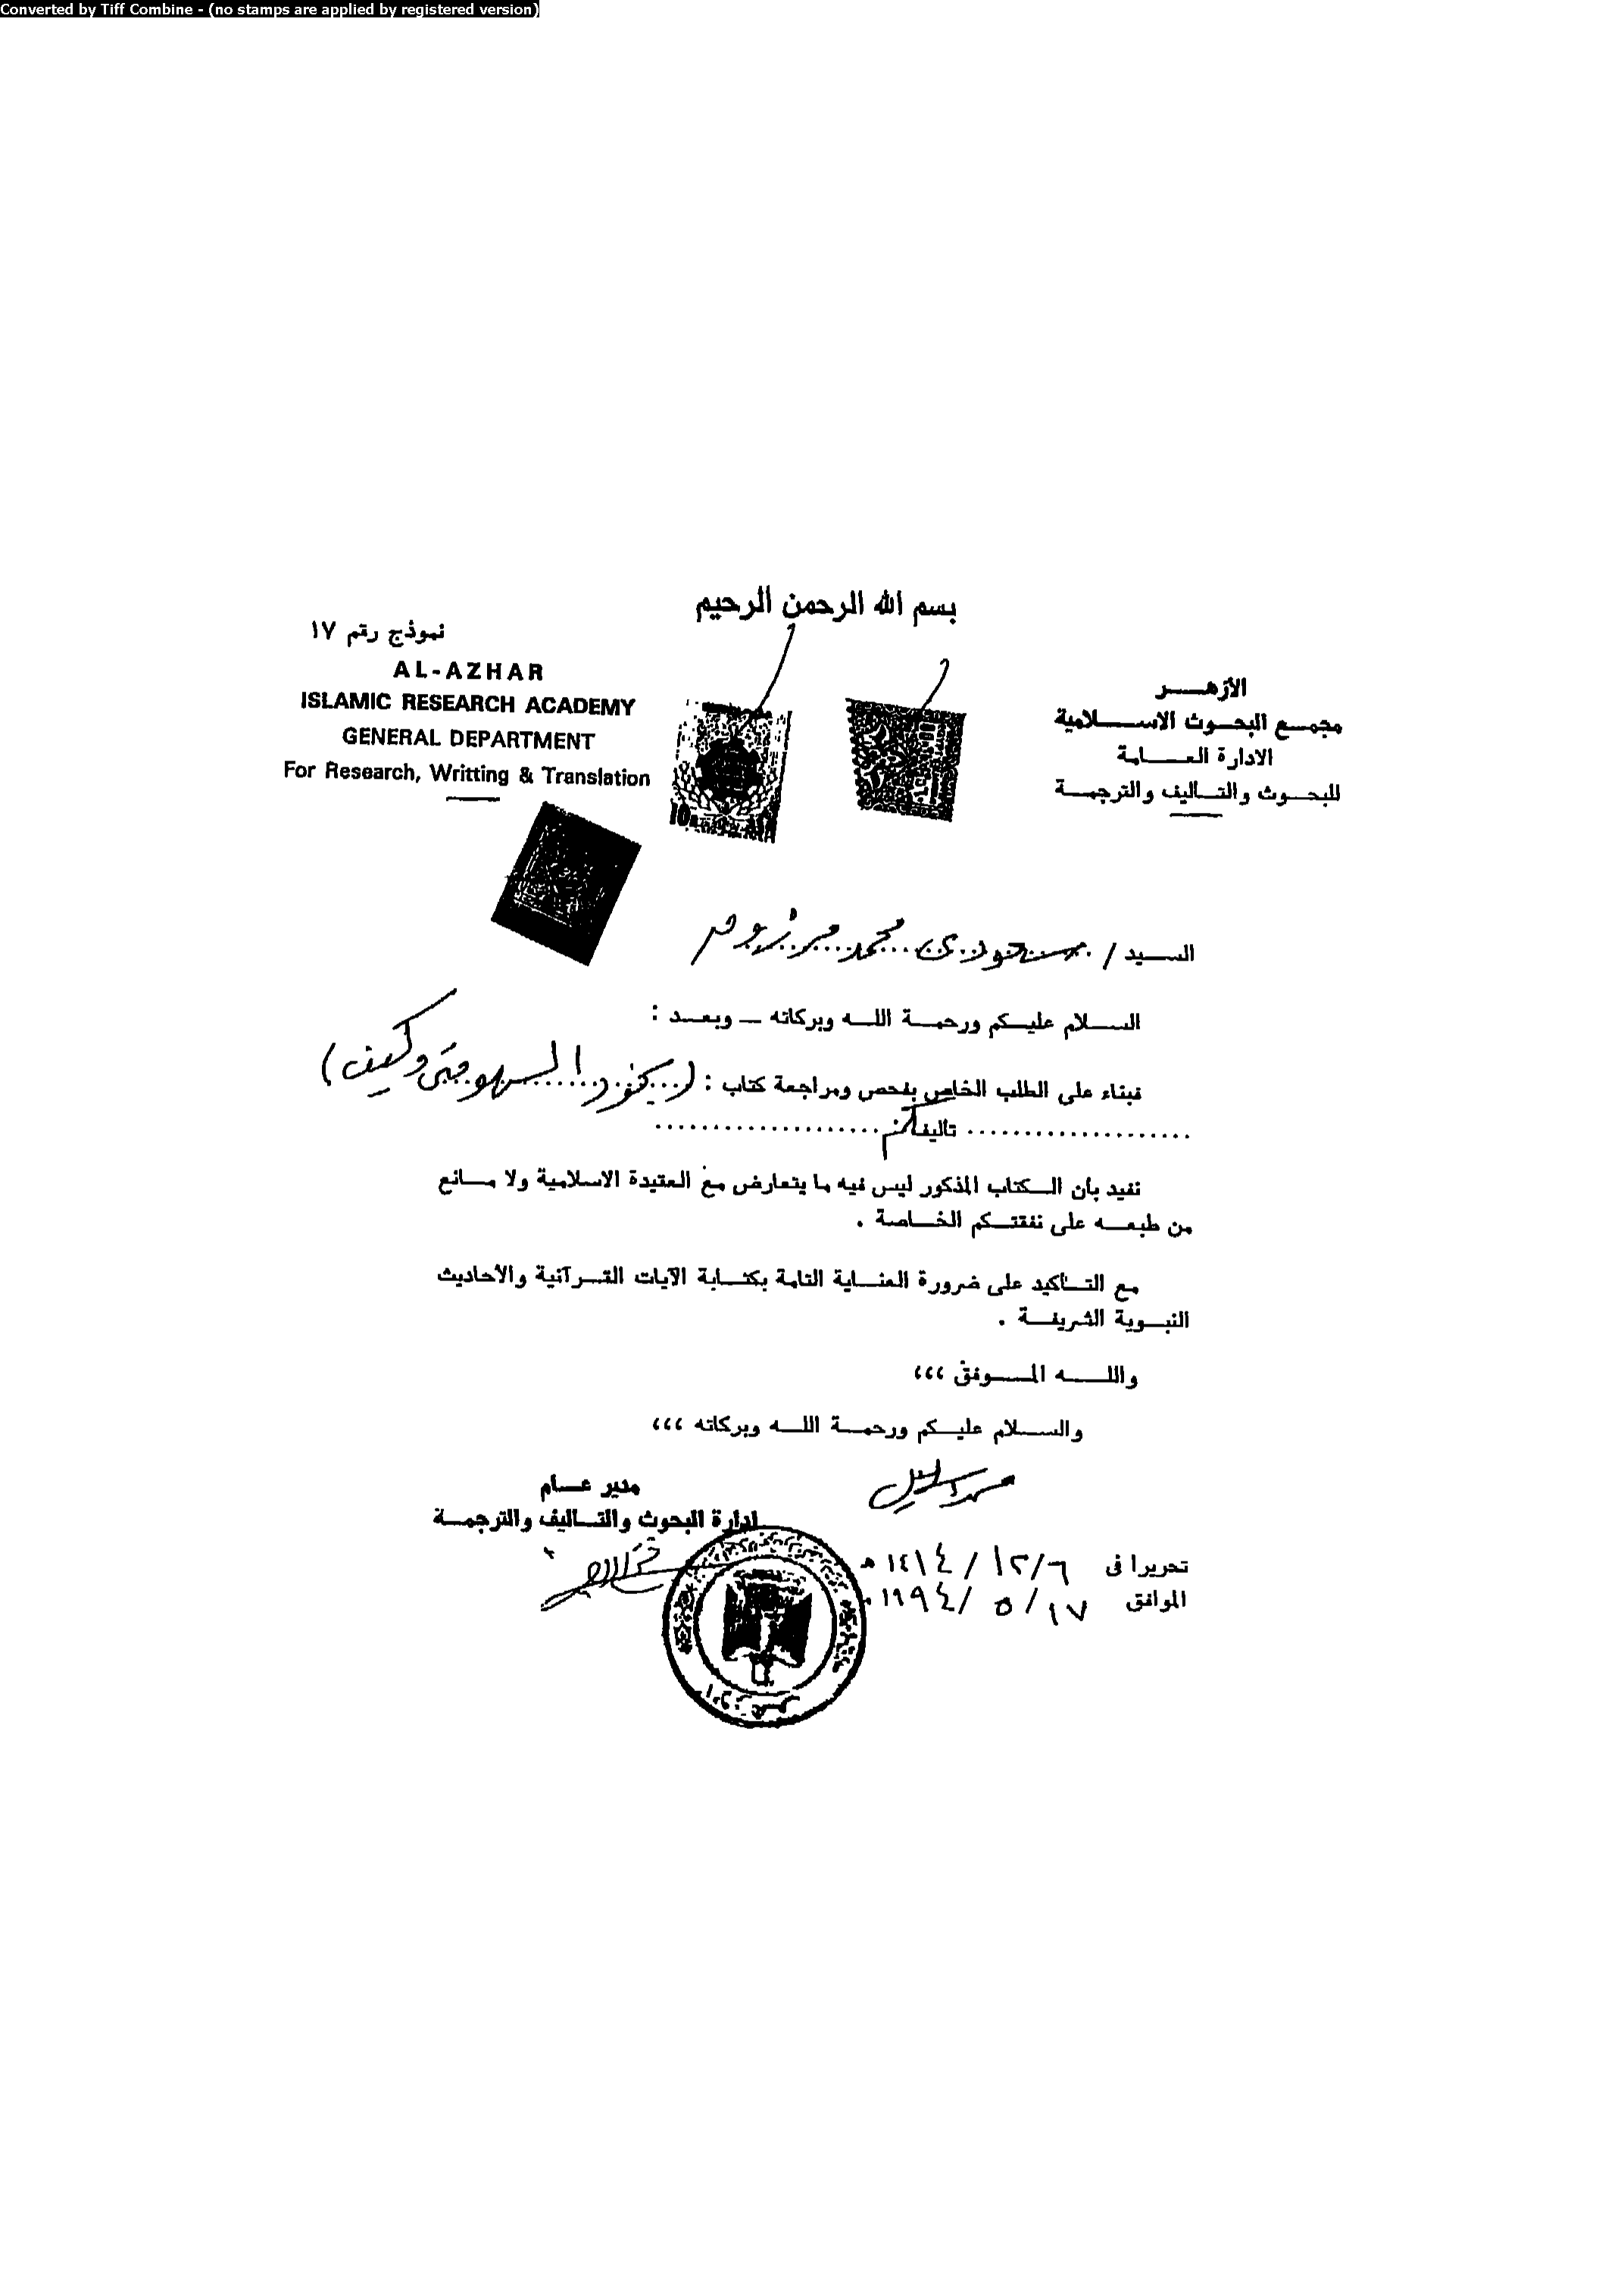 Converted by Tiff Combine - (no stamps are applied by registered version)
بسم الله الرحمن الرحيم
نموذج رقم ١٧
AL-AZHAR
ISLAMIC RESEARCH ACADEMY
GENERAL DEPARTMENT
For Research, Writting & Translation
الأزهـــر
مجمـع البحـوث الاســـلامية
الادارة العـــامة
للبحـوث والتـاليف والترجمـة
10
السـيد /
محمد
السـلام عليـكم ورحمـة اللـه وبركاته ــ وبعـد :
فبناء على الطلب الخاص بفحص ومراجعة كتاب : ( السهو متى وكيف )
.................... تأليف ....................
نفيد بأن الـكتاب المذكور ليس فيه ما يتعارض مع العقيدة الاسلامية ولا مـانع
من طبعـه على نفقتـكم الخـاصة .
مع التـأكيد على ضرورة العنـاية التامة بكتـابة الآيات القـرآنية والأحاديث
النبـوية الشريفـة .
واللــه المـوفق ،،،
والسـلام عليـكم ورحمـة اللـه وبركاته ،،،
مدير عـام
ادارة البحوث والتـاليف والترجمـة
تحريرا فى ٦/ ١٢/ ١٤١٤ هـ
الموافق ١٧/ ٥/ ١٩٩٤ م